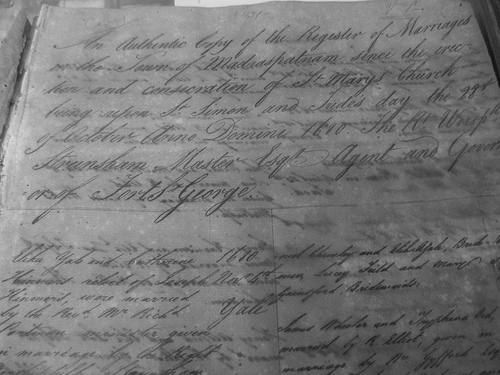 An Authentic Copy of the Register of Marriages
the Town of Madraspatnam since the erec-
tion and consecration of St Marys Church
being upon St Simon and Judes day the 28th
of October Anno Domini 1680. The Rt Worspl
Streynsham Master Esqr Agent and Govern
or of Fort St George
Elihu Yale and Catherine 1680
Hinmors relict of Joseph Nov. 4th
Hinmors, were married Yale
by the Revd Mr Richd
Portman minister given
in marriage by the Right
men, Lucy Field and
Bridemaids.
James Wheeler and Tryphena Ord,
married by R Elliot, given in
marriage by Mr Gifford